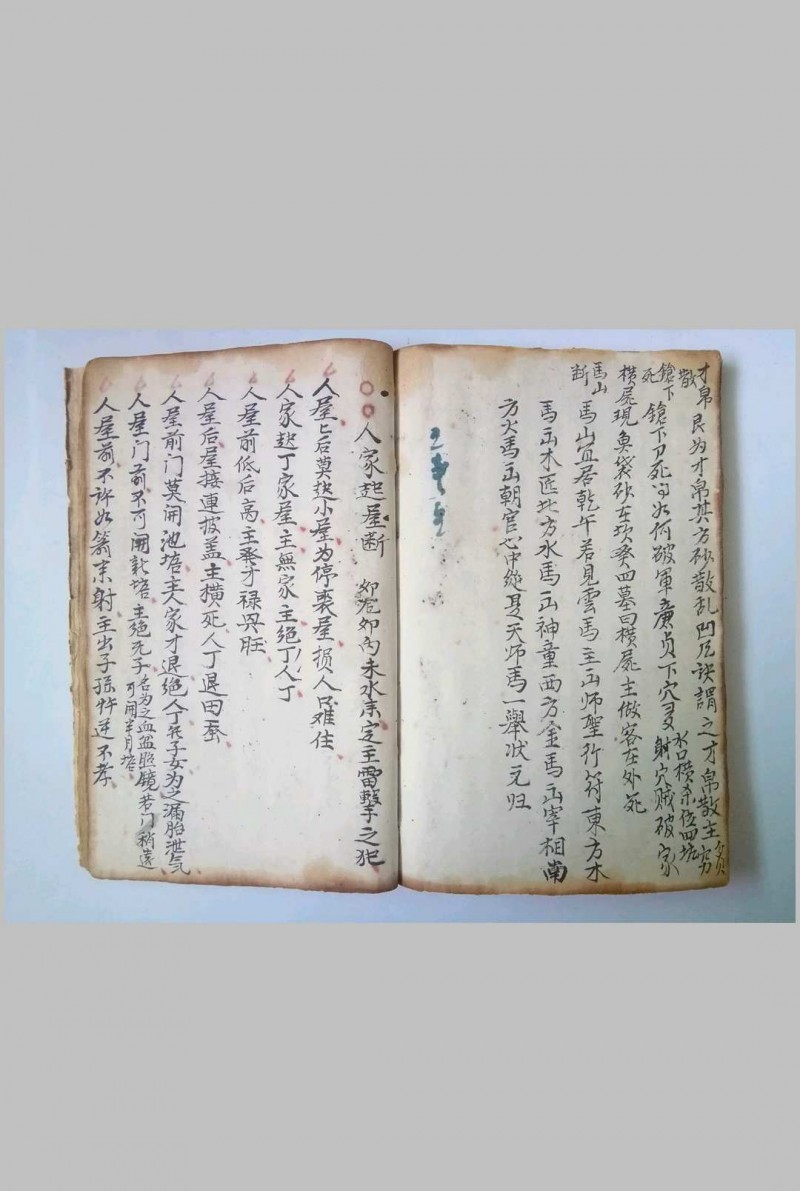 才帛散 艮为才帛其方砂散乱凹尺诀謂之才帛散主貧穷
鎗下死 鎗下刀死向如何破軍廉贞下穴多 水口横杀位四坑 射穴贼破家
横屍現奥袋砂在坎癸四墓曰横屍主做客在外死
馬山断 馬山宜居乾午若見雲馬主山师聖行符東方木
馬山木匠北方水馬山神童西方金馬山宰相南
方火馬山朝官心中縱是天师馬一舉状元归
人家起屋断 卯屋卯向未水来定主雷擊之犯
人屋之后莫起小屋为停丧屋损人口难住
人家起丁家屋主無家主绝丁人丁
人屋前低后高主発才禄兴旺
人屋后屋接連披盖主横死人丁退田蚕
人屋前门莫開池塘主人家才退绝人丁死子女为之漏胎泄气
人屋门前不可開新塘主绝死子名为之血盆照镜若门稍遠可開半月塘
人屋前不許如箭来射主出子孫忤逆不孝